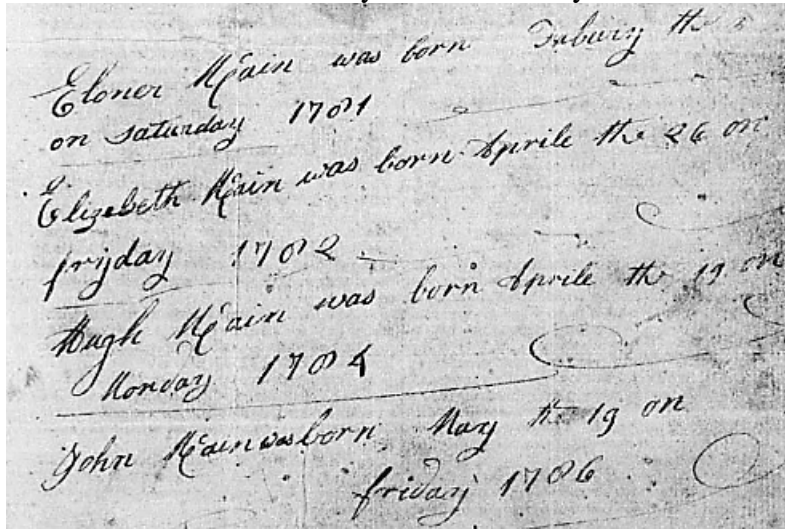 Eloner Mcain was born Febury the
on Saturday 1781
Elizebeth Mcain was born Aprile the 26 on
fryday 1782
Hugh Mcain was born Aprile the 19 on
Monday 1784
John Mcain was born May the 19 on
friday 1786